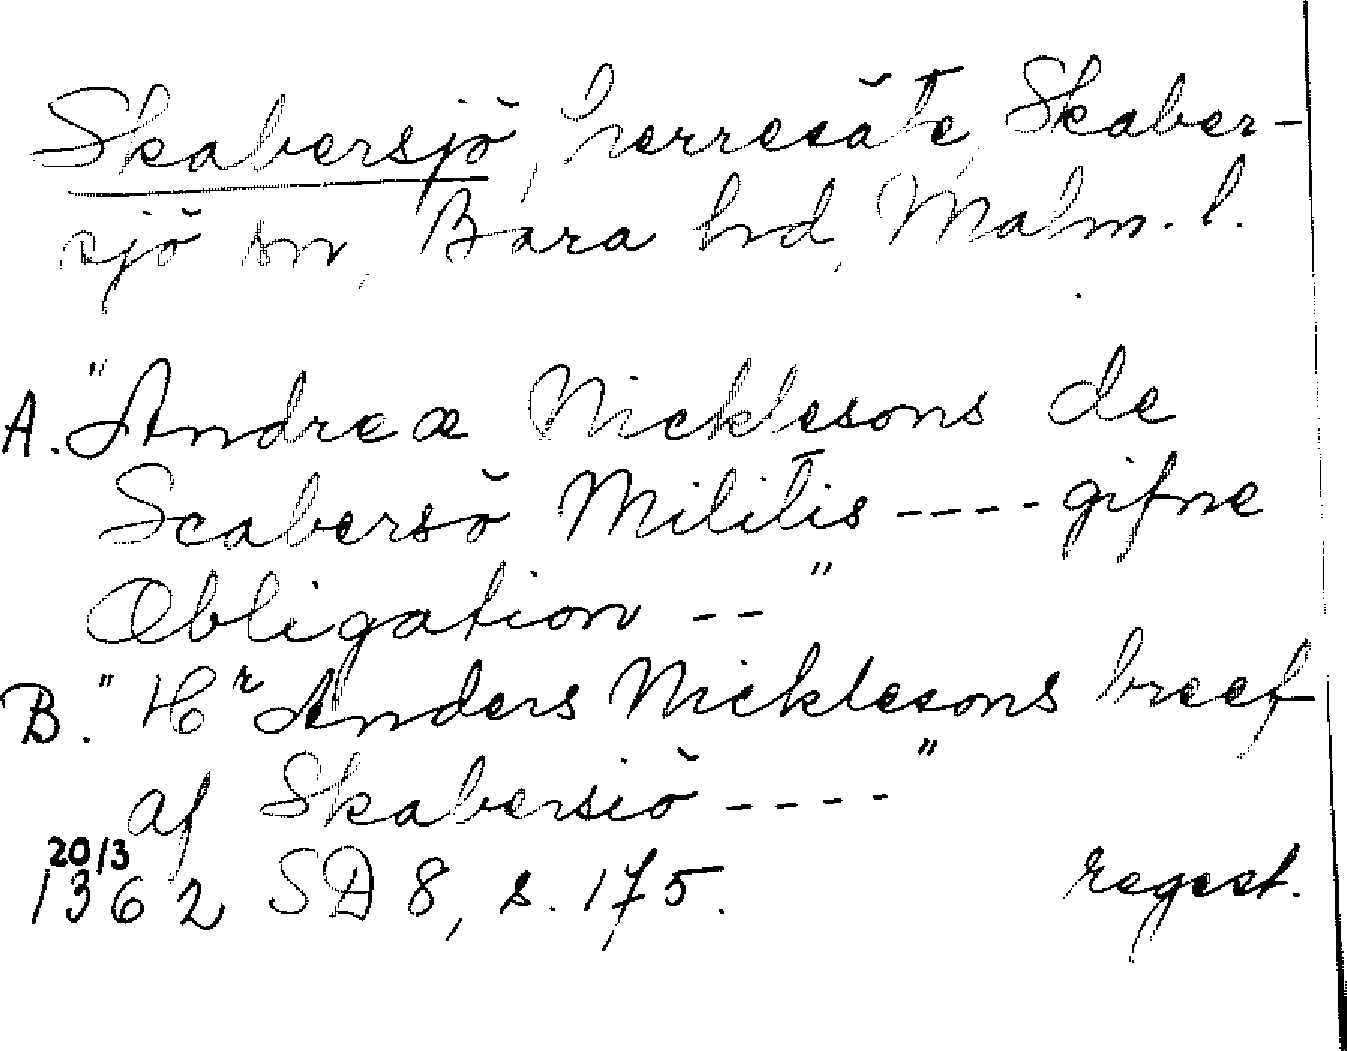 Skabersjö, herresäte, Skaber-
sjö sn, Bara hd, Malm. l.
A. "Andreæ Nicklesons de
Scabersö Militis ---- gifne
Obligation --"
B. "Hr Anders Nicklesons breef
af Skabersiö ----"
20/3
1362 SD 8, s. 175. regest.